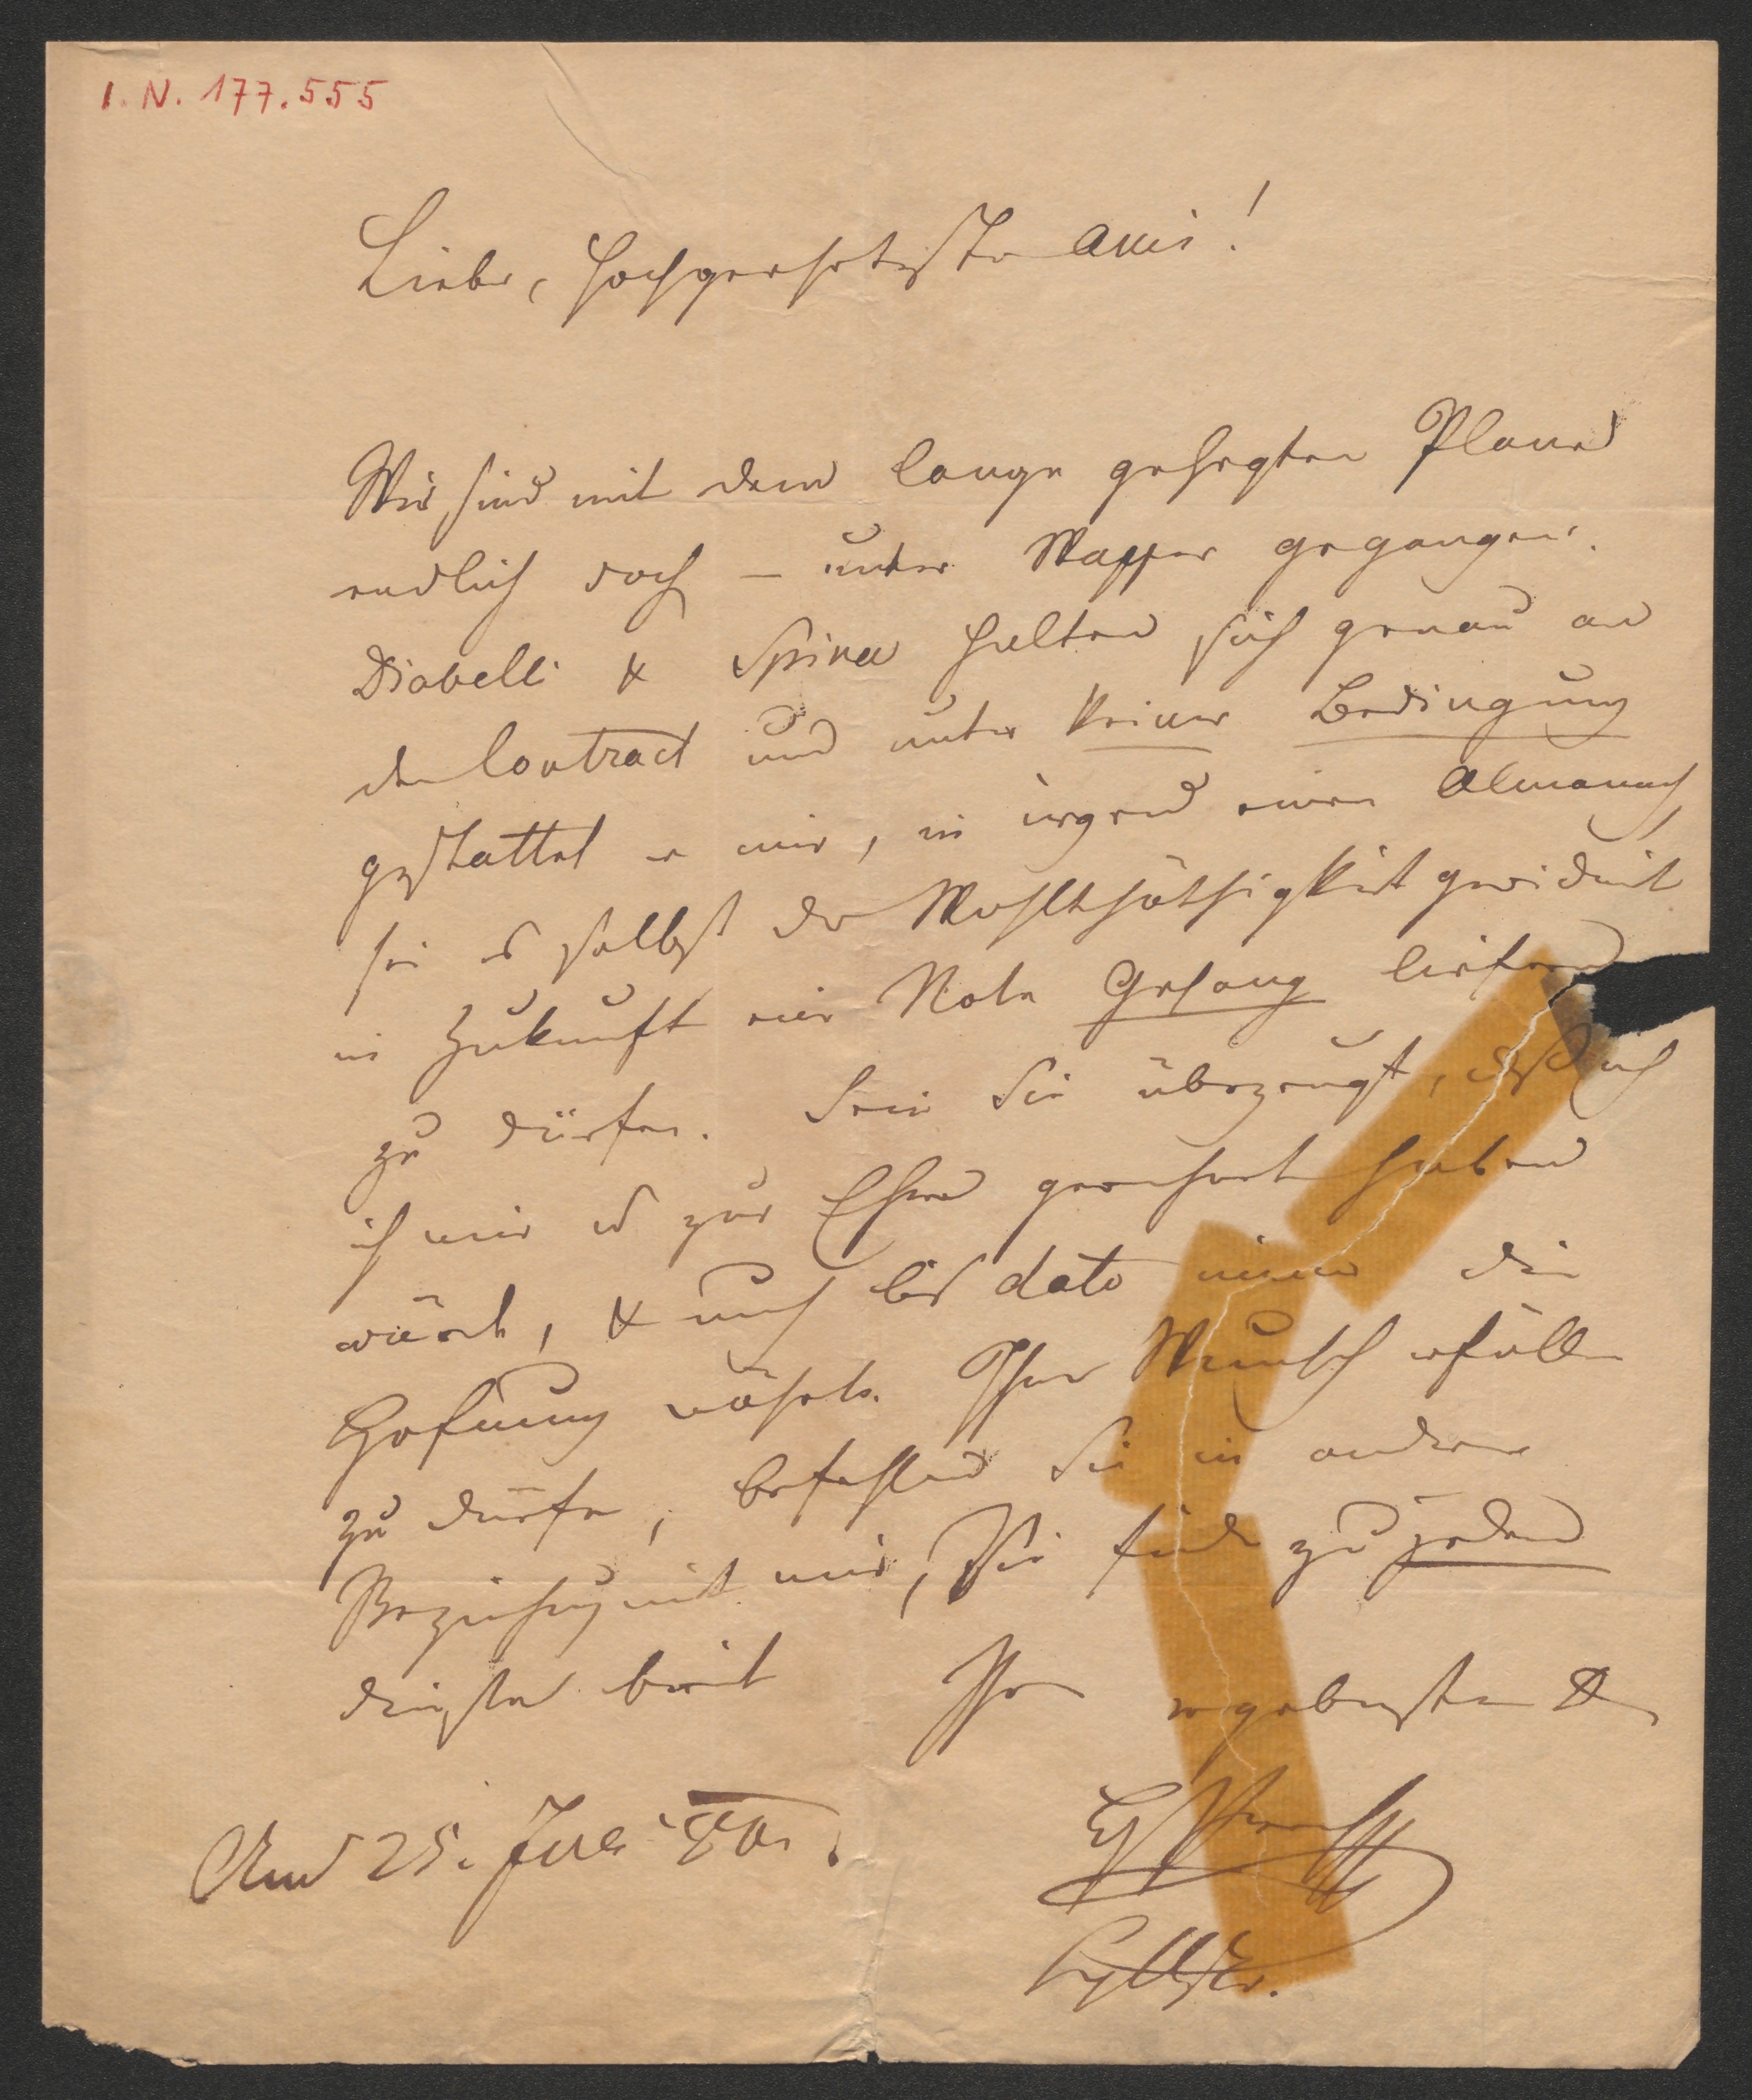 I. N. 177.555
Lieber, hochgeehrtester Ami!
Wir sind mit dem lange gehegten Plane
endlich doch – unter Wasser gegangen.
Diabelli & Spina halten sich genau an
den Contract und unter keiner Bedingung
gestattet er mir, in irgend einen Almanach,
sei es selbst der Wohlthäthigkeit gewidmet
in Zukunft eine Note Gesang liefern
zu dürfen. Sein Sie überzeugt, daß
ich mir es zur Ehre gerechnet haben
würde, & auch bis dato immer die
Hofnung nährte Ihren Wunsch erfüllen
zu dürfen, befehlen Sie in anderer
Beziehung mit mir, Sie finden zu jedem
Dienste bereit Ihren ergebensten
Am 25. Juli